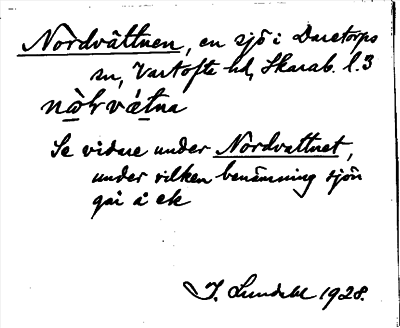 Nordvättnen, en sjö i Daretorps
sn, Vartofte hd, Skarab. l. 3
nὰrvátna
Se vidare under Nordvattnet,
under vilken benämning sjön
går å ek
I. Lundahl 1928.